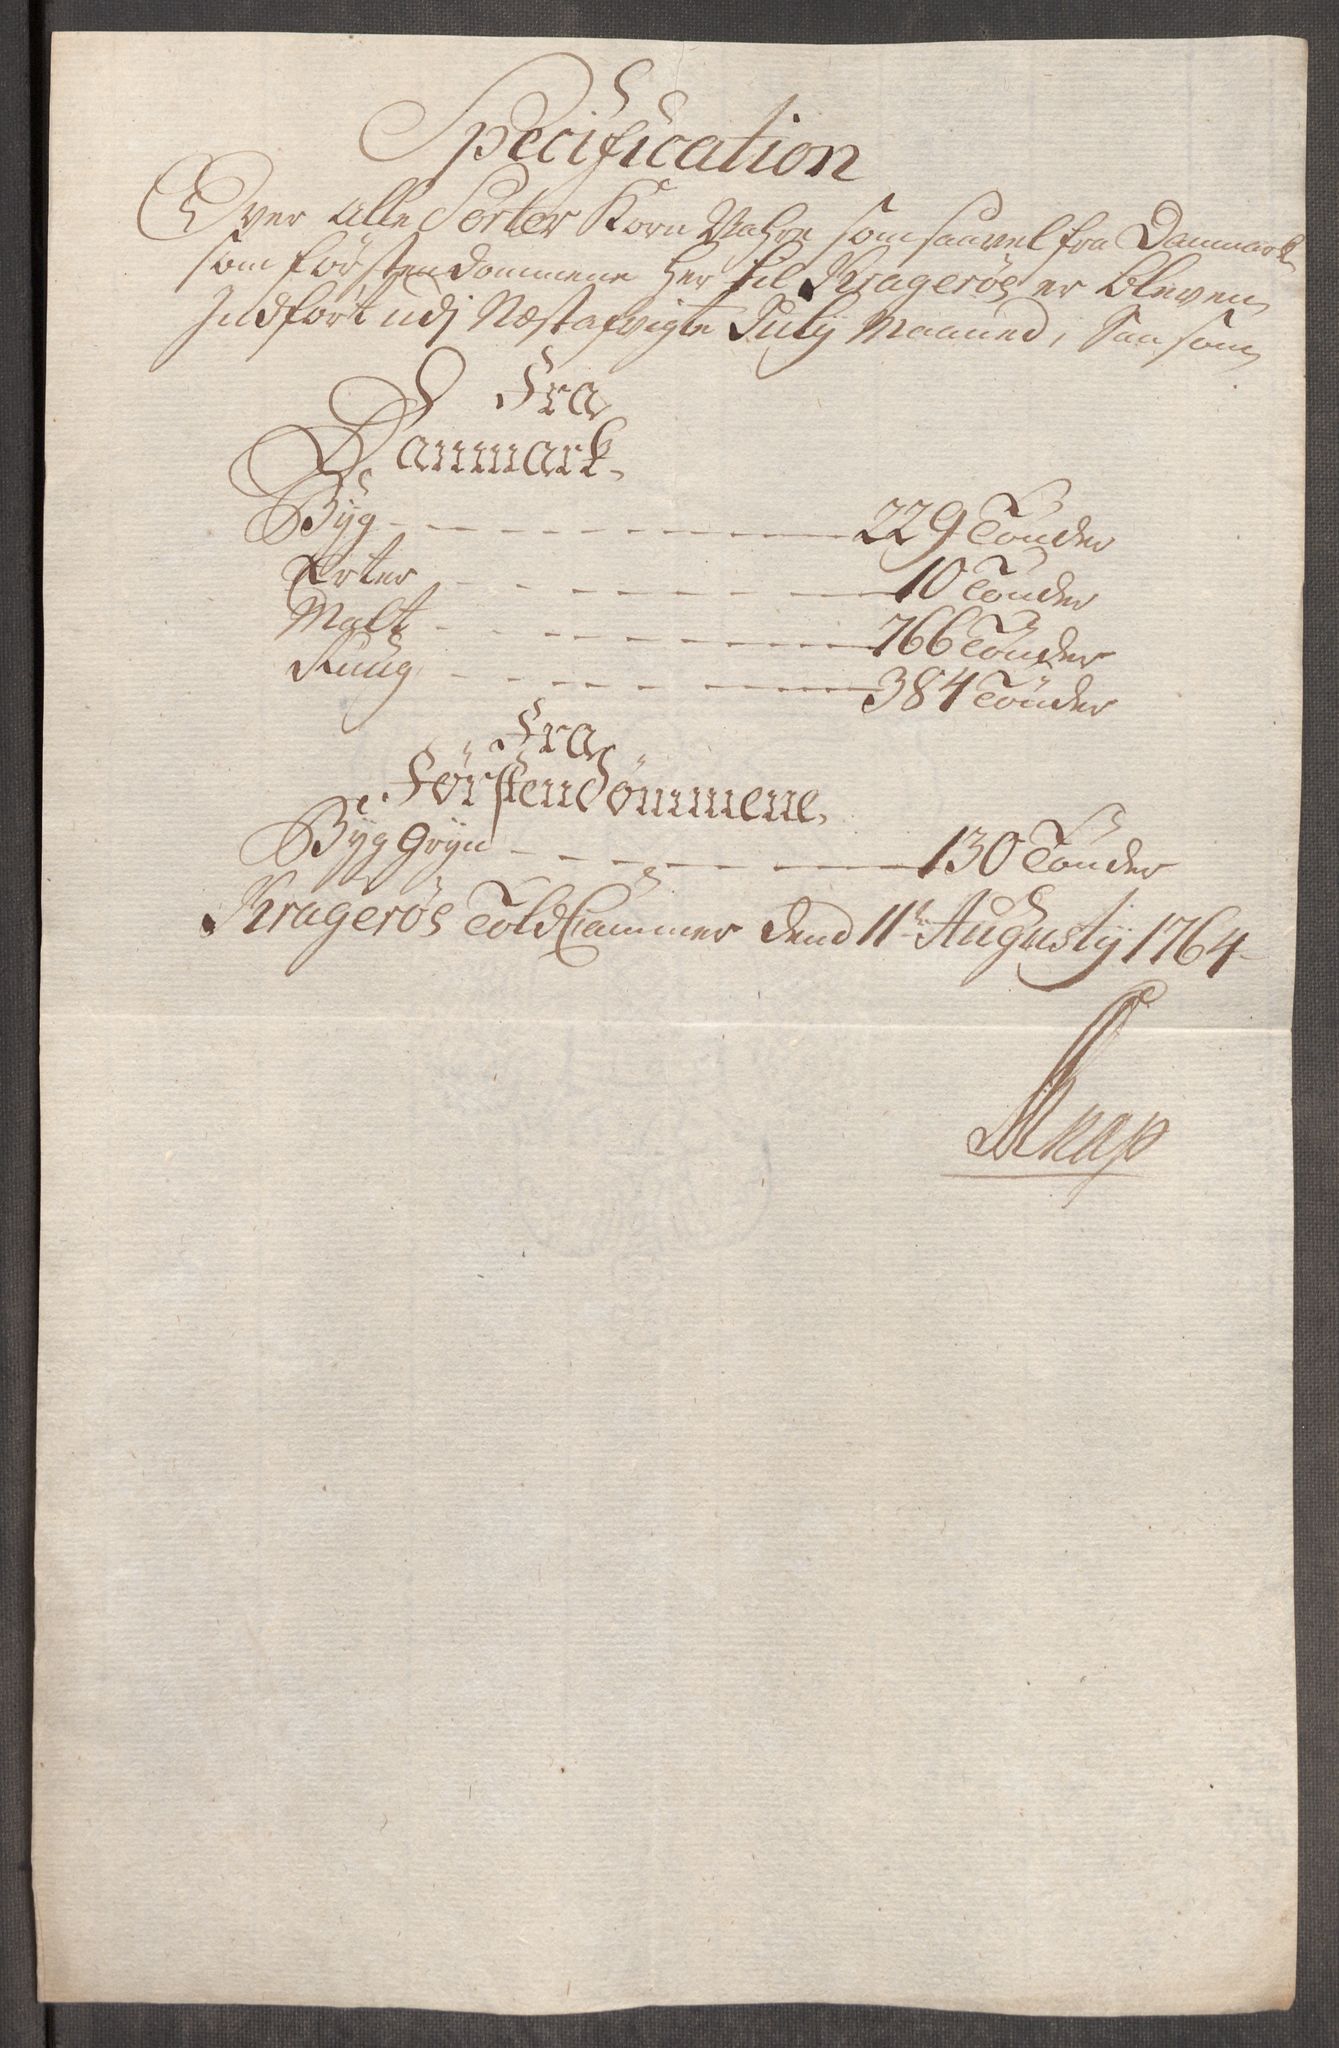 Specification
Over alle Sorter Korn Vahre som saavel fra Danmark
som förstendommene her til Kragerös er bleven
Indfört udj Næstafvigte Julij Maaned, Saa som
Fra
Danmark.
Byg 229 Tönder
Erter 10 Tönder
Malt 766 Tönder
Ruug 384 Tönder
Fra
Förstendömmene.
Byg Gryn 130 Tönder
Kragerös Told Cammer dend 11te Augustij 1764